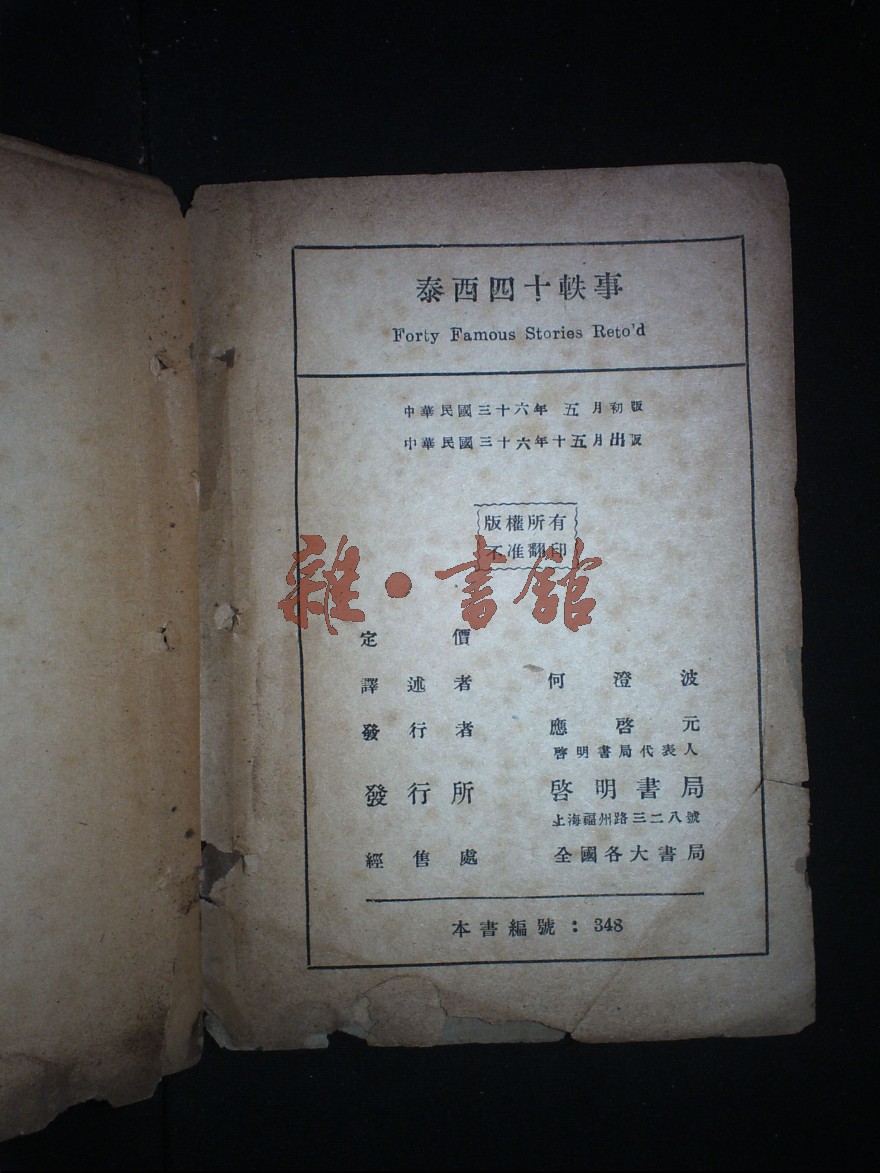 泰西四十軼事
Forty Famous Stories Reto'd
中華民國三十六年 五 月初版
中華民國三十六年十五月出版
版權所有
不准翻印
雜・書館
定 價
譯述者 何澄波
發行者 應啓元
啓明書局代表人
發行所 啓明書局
上海福州路三二八號
經售處 全國各大書局
本書編號：348